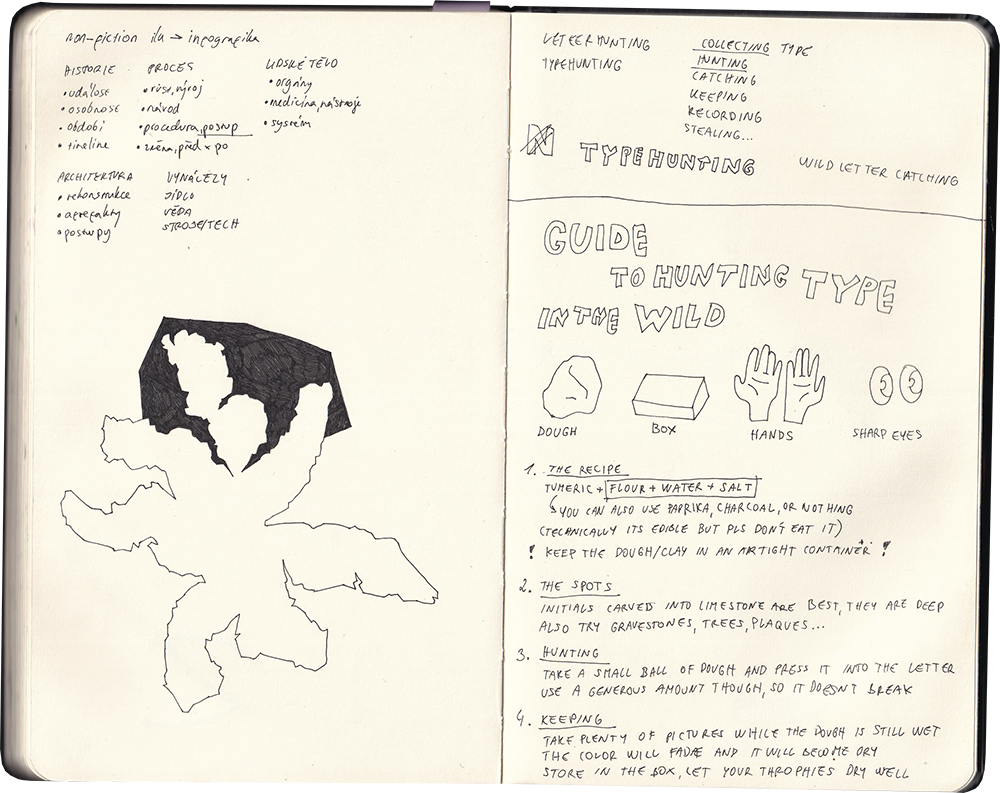 non-fiction ilu → infografika
HISTORIE
• událost
• osobnost
• období
• timeline
PROCES
• růst, vývoj
• návod
• procedura, postup
• změna, před x po
LIDSKÉ TĚLO
• orgány
• medicína, nástroje
• systém
ARCHITEKTURA
• rekonstrukce
• artefakty
• postupy
VYNÁLEZY
JÍDLO
VĚDA
STROJE/TECH
LETTERHUNTING
TYPEHUNTING
COLLECTING TYPE
HUNTING
CATCHING
KEEPING
RECORDING
STEALING...
TYPEHUNTING
WILD LETTER CATCHING
GUIDE
TO HUNTING TYPE
IN THE WILD
DOUGH
BOX
HANDS
SHARP EYES
1. THE RECIPE
TUMERIC + FLOUR + WATER + SALT
↳ YOU CAN ALSO USE PAPRIKA, CHARCOAL, OR NOTHING
(TECHNICALLY ITS EDIBLE BUT PLS DON'T EAT IT)
! KEEP THE DOUGH/CLAY IN AN AIRTIGHT CONTAINER !
2. THE SPOTS
INITIALS CARVED INTO LIMESTONE ARE BEST, THEY ARE DEEP
ALSO TRY GRAVESTONES, TREES, PLAQUES...
3. HUNTING
TAKE A SMALL BALL OF DOUGH AND PRESS IT INTO THE LETTER
USE A GENEROUS AMOUNT THOUGH, SO IT DOESN'T BREAK
4. KEEPING
TAKE PLENTY OF PICTURES WHILE THE DOUGH IS STILL WET
THE COLOR WILL FADE AND IT WILL BECOME DRY
STORE IN THE BOX, LET YOUR THROPHIES DRY WELL